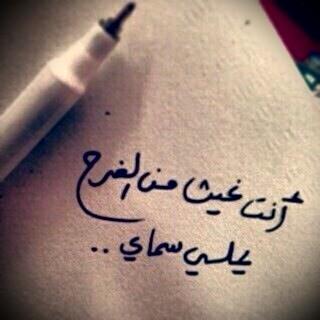 أنت غيث من الفرح
يكسي سماي ..